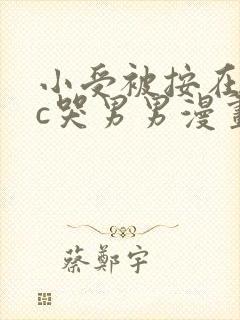 小受被按在
c哭男男漫畫
蔡鄭宇